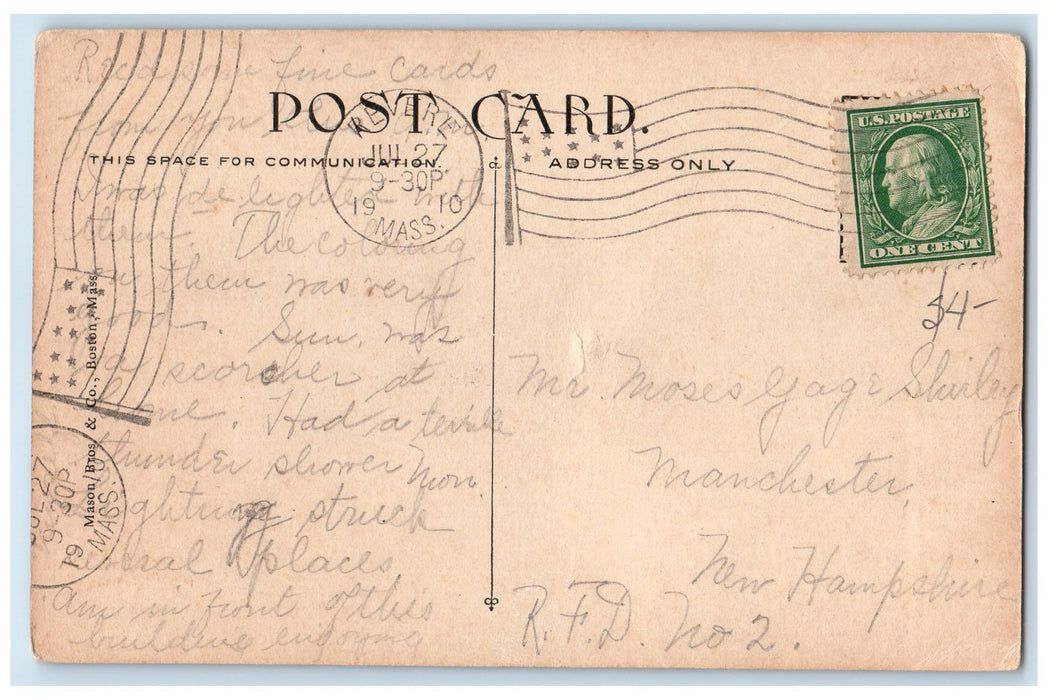 Recd some fine cards
POST CARD.
from you
THIS SPACE FOR COMMUNICATION.
ADDRESS ONLY
I was delighted with
them. The coloring
on them was very
good. Sun. was
a scorcher at
home. Had a terrible
thunder shower Mon.
Lightning struck
several places
Am in front of this
building enjoying
REVERE
JUL 27
9-30P
19 10
MASS.
U.S. POSTAGE
ONE CENT
54-
Mr. Moses Gage Shirley
Manchester,
New Hampshire
R.F.D. No 2.
Mason Bros. & Co., Boston, Mass.
JUL 27
9-30P
19 10
MASS.